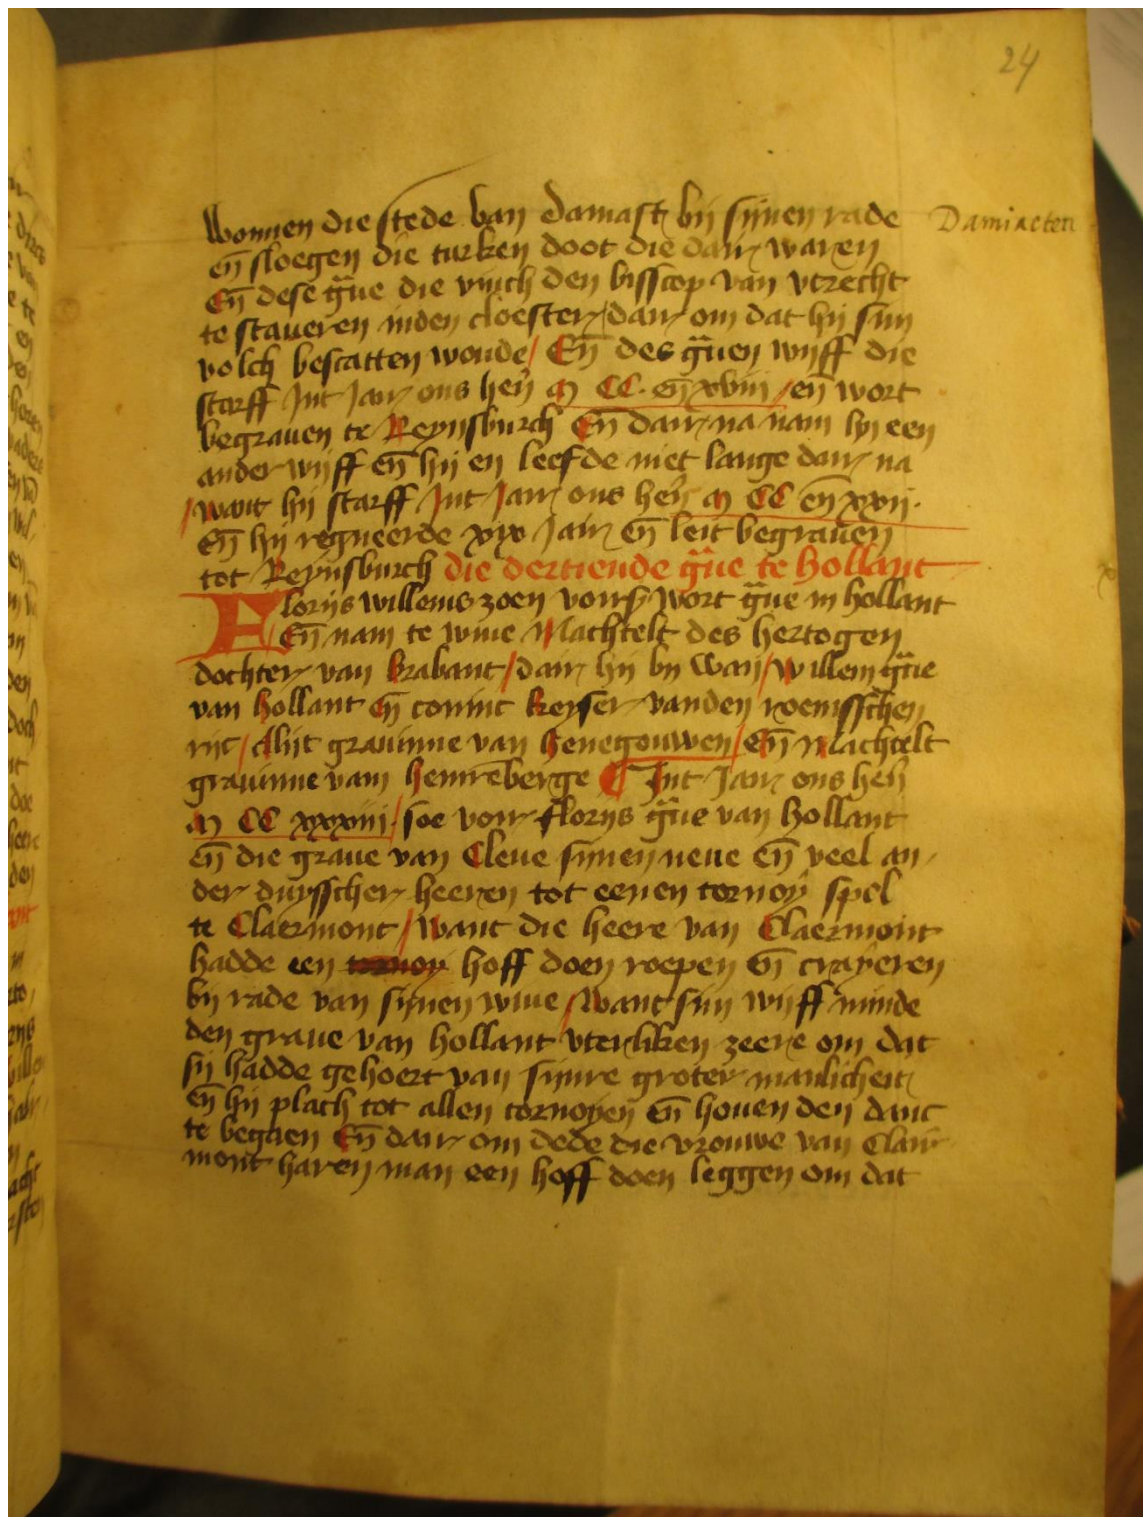 24
wonnen die stede van damast bij sijnen rade
Damiaeten
eñ sloegen die turken doot die dair waren
Eñ dese g̃ue die vinch den bisscop van vtrecht
te staueren inden cloester dair om dat hij sijn
volch bescatten woude / Eñ des g̃uen wijff die
starff Int Jair ons heñ M CC. eñ xviii / en wort
begrauen te Reynsburch Eñ dair na nam hij een
ander wijff eñ hij en leefde niet lange dair na
/ want hij starff Int Jair ons heñ M CC eñ xxii.
Eñ hij regneerde xix Jair eñ leit begrauen
tot Reynsburch die dertiende g̃ue te hollant
Florijs willems zoen voirs wort g̃ue in hollant
Eñ nam te wiue Machtelt des hertogen
dochter van brabant / dair hij bij wan / willem g̃ue
van hollant eñ coninc keyser vanden roemsschen
rijc / Alijt grauinne van henegouwen / Eñ Machtelt
grauinne vam hennēberge Int Jair ons heñ
M CC xxxiiii / soe voir florijs g̃ue van hollant
eñ die graue van Cleue sijnen neue eñ veel an
der duysscher heeren tot eenen tornoy spel
te Claermont / want die heere van Claermont
hadde een tornoy hoff doen roepen eñ crayeren
bij rade van sijnen wiue / want sijn wijff minde
den graue van hollant vterliken zeere om dat
sij hadde gehoert van sijnre groter manlicheit
eñ hij plach tot allen tornoyen eñ houen den danc
te begaen Eñ dair om dede die vrouwe van Clair
mont haren man een hoff doen leggen om dat